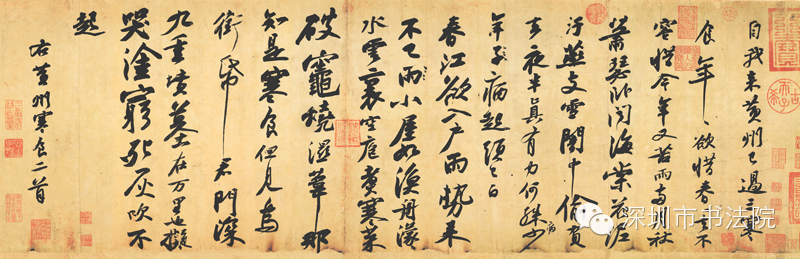 自我来黄州已過三寒
食年〻欲惜春〻去不
容惜今年又苦雨兩月秋
蕭瑟卧聞海棠花泥
汙燕支雪闇中偷負
去夜半真有力何殊病少
年子病起頭已白
春江欲入户雨勢来
不已雨小屋如漁舟濛〻
水雲裏空庖煮寒菜
破竈燒濕葦那
知是寒食但見烏
銜帋君門深
九重墳墓在万里也擬
哭塗窮死灰吹不
起
右黄州寒食二首
深圳市书法院